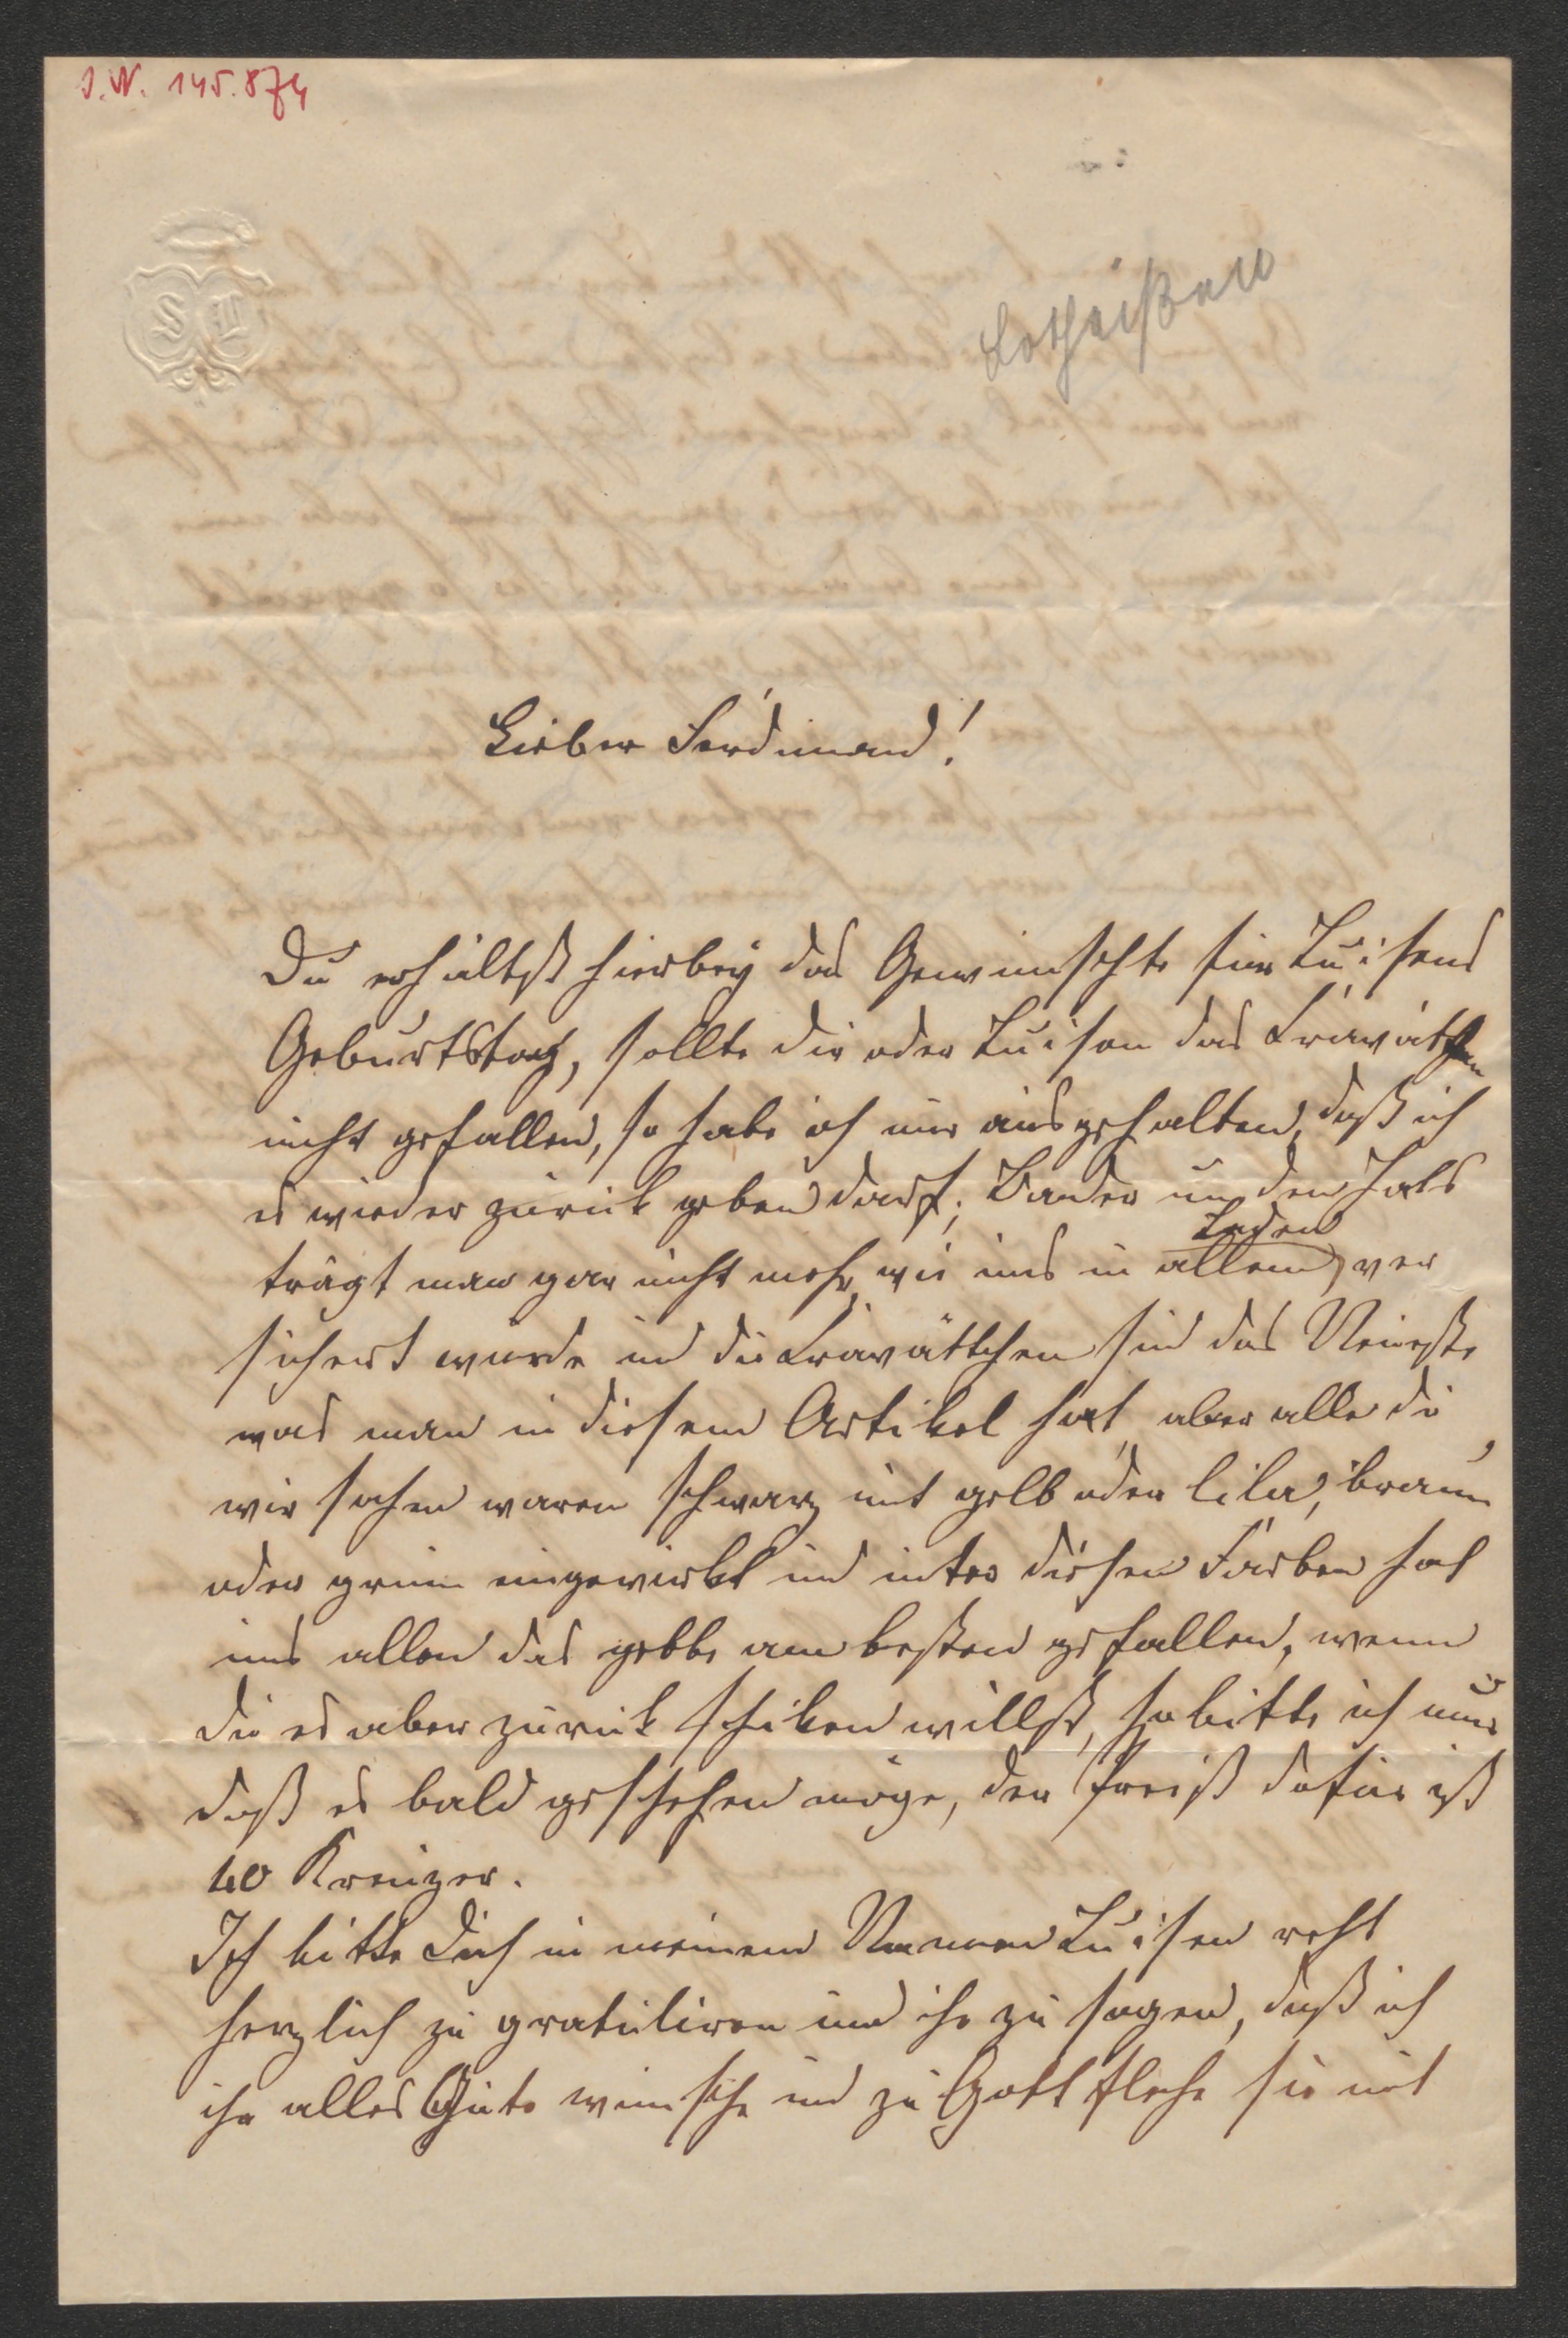 I.N. 145.874
SL
Lotheißen
Lieber Ferdinand!
Du erhältst hierbey das Gewünschte für Luisens
Geburtstag, sollte dir oder Luisen das Kravättchen
nicht gefallen, so habe ich mir ausgehalten, daß ich
es wieder zurück geben darf; Bänder um den Hals
Läden
trägt man gar nicht mehr, wie uns in allen ver
sichert wurde und die Kravättchen sind das Neueste
was man in diesem Artikel hat, aber alle die
wir sahen waren schwarz mit gelb oder lila, braun
oder grün eingewirkt und unter diesen Farben hat
uns allen das gelbe am besten gefallen, wenn
du es aber zurück schiken willst, so bitte ich nur
daß es bald geschehen möge, der Preiß dafür ist
40 Kreuzer.
Ich bitte Dich in meinem Namen Luisen recht
herzlich zu gratuliren und ihr zu sagen, daß ich
ihr alles Gute wünsche und zu Gott flehe sie mit